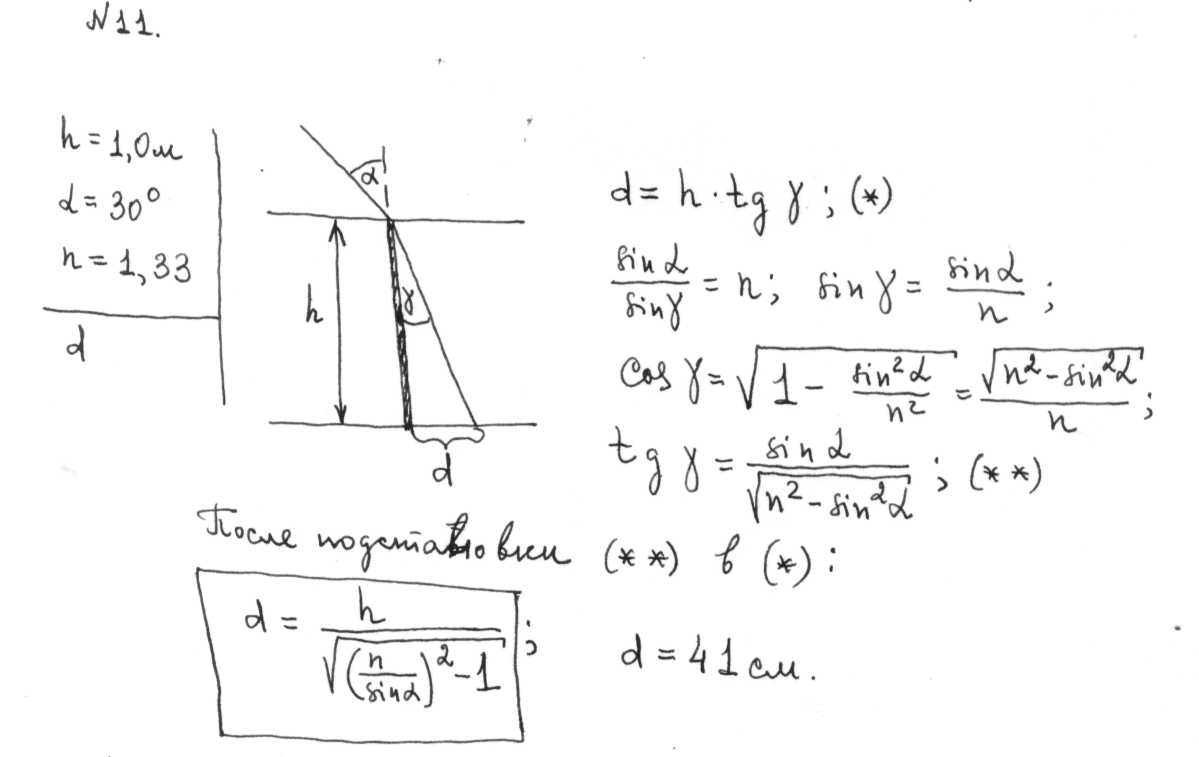 №11.
h = 1,0м
α = 30°
n = 1,33
d
α
h
γ
d
d = h · tg γ ; (*)
sin α / sin γ = n; sin γ = sin α / n ;
cos γ = √(1 - sin² α / n²) = √(n² - sin² α) / n ;
tg γ = sin α / √(n² - sin² α) ; (**)
После подстановки (**) в (*) :
d = h / √((n / sin α)² - 1) ; d = 41 см.